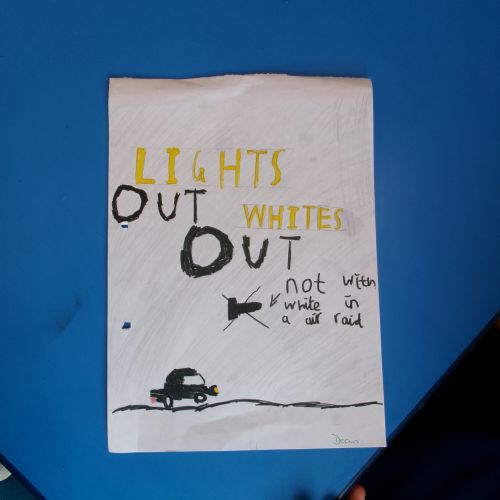 LIGHTS
OUT WHITES
OUT
not with
white in
a air raid
Dean.